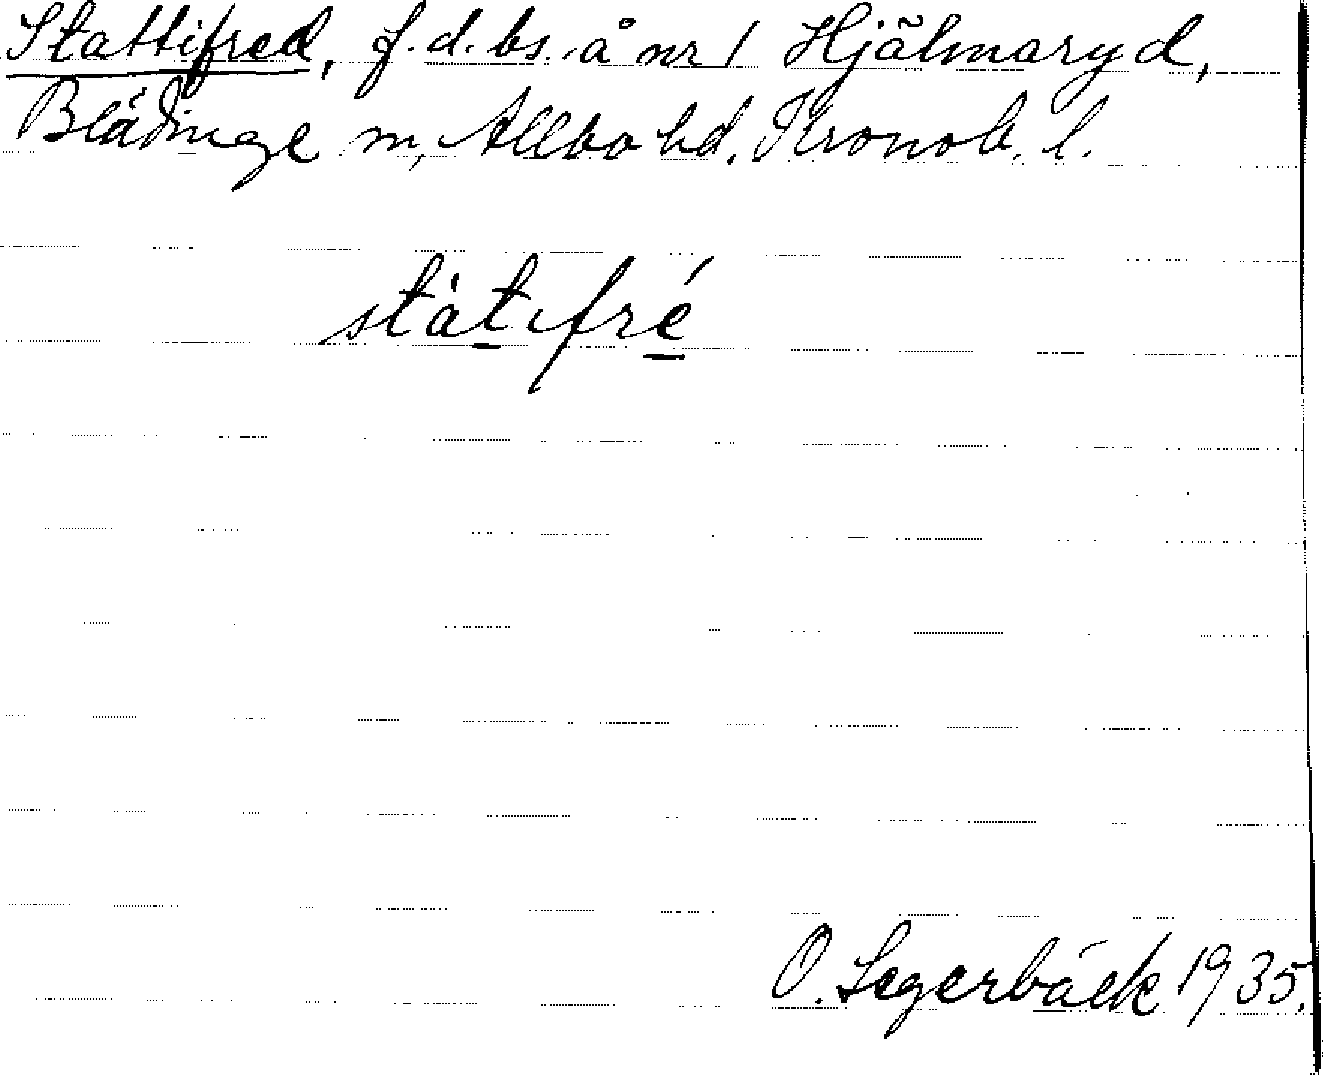 Stattifred, f.d. bs. å nr 1 Hjälmaryd,
Blädinge sn, Allbo hd. Kronob. l.
státifré
O. Segerbäck 1935.